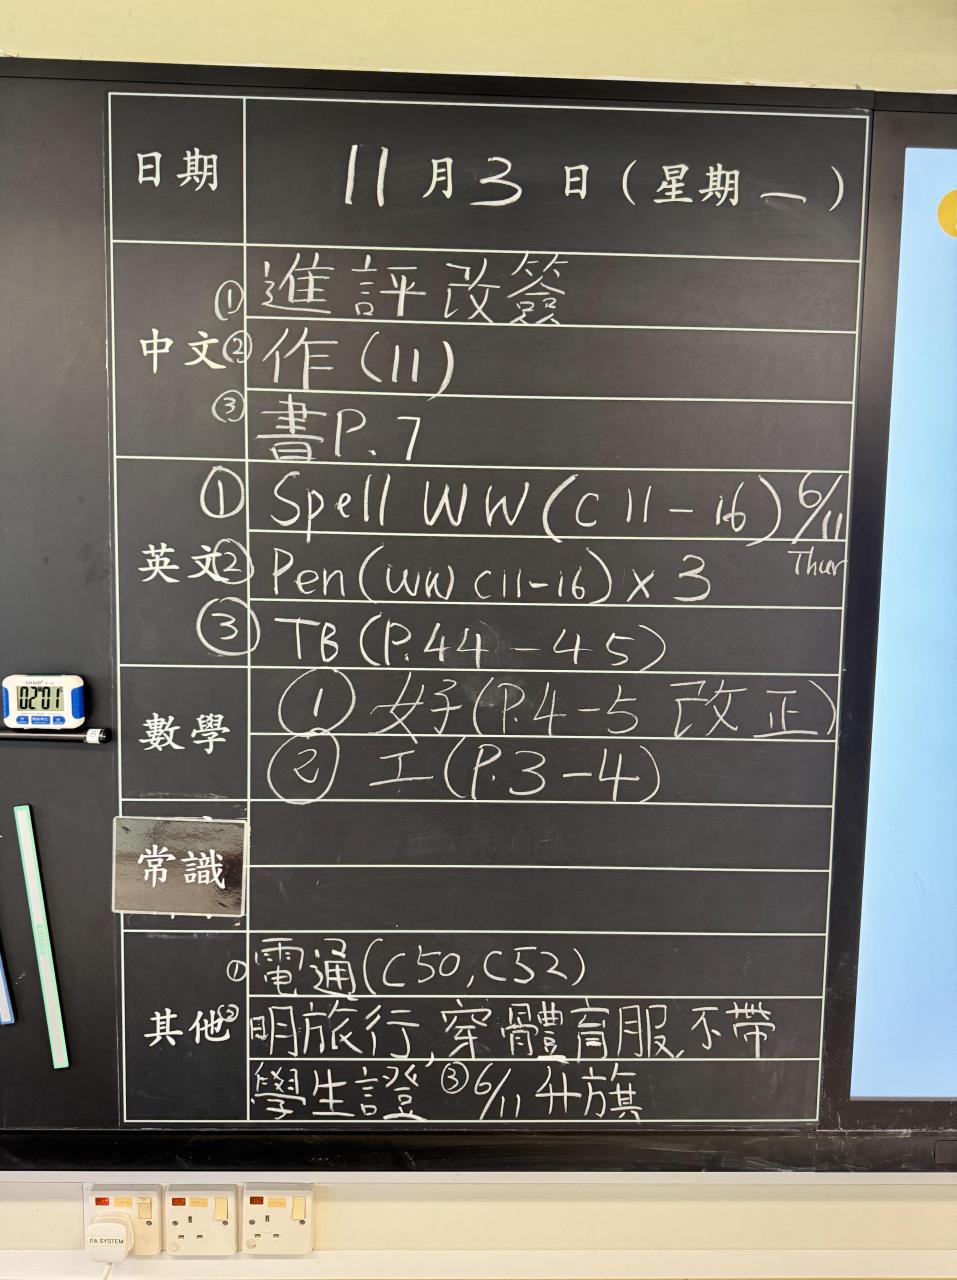 日期 11月3日(星期一)
中文 ① 進評改簽
② 作(11)
③ 書P.7
英文 ① Spell WW (C11-16) 6/11 Thur
② Pen (WW C11-16) x 3
③ TB (P.44-45)
數學 ① 好(P.4-5 改正)
② 工(P.3-4)
常識
其他 ① 電通(C50, C52)
② 明旅行, 穿體育服, 不帶
學生證 ③ 6/11 升旗
02 01
PA SYSTEM